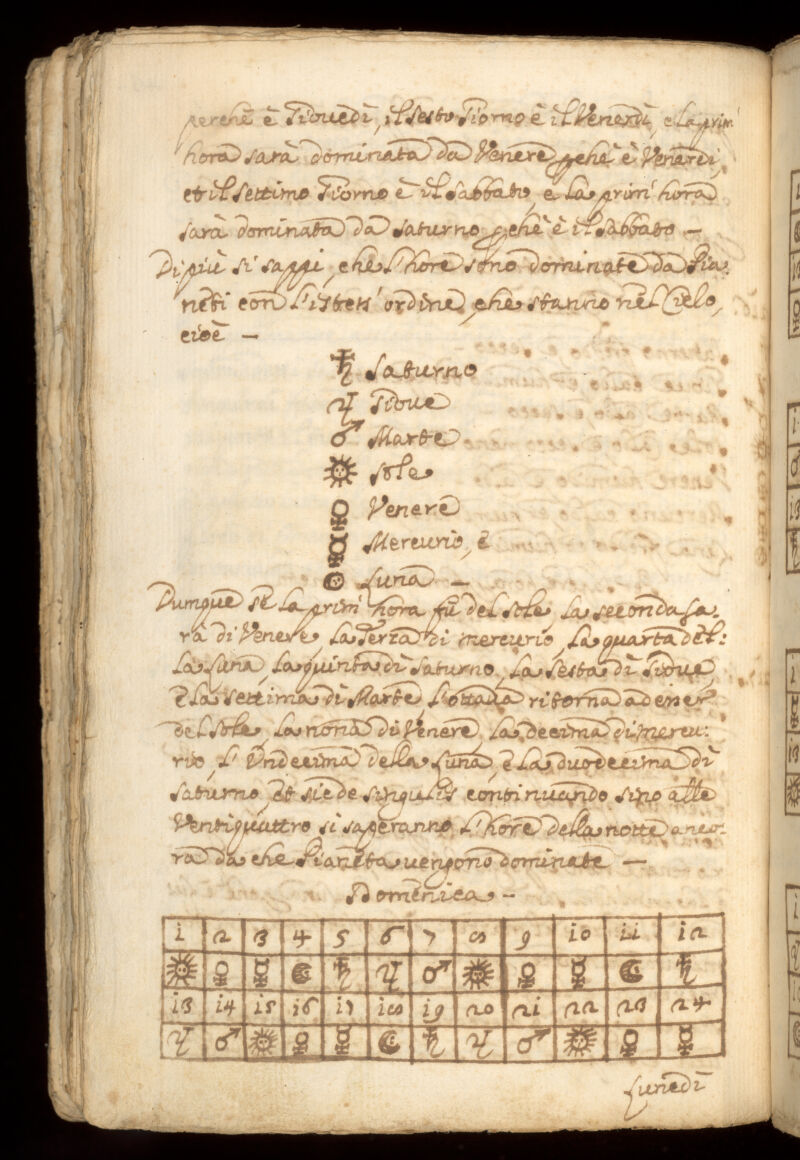 perche è Giouedì, il sesto Giorno è il Venerdì, e la prim'
hora sarà dominata da Venere, pche è Venerdì,
et il settimo Giorno è il sabbato, e la prim' hora
sarà dominata da saturno pche è il sabbato —
Di più si sappi, che l'hore sono dominate da Pia:
neti con l'istess' ordine, che stanno nel Cielo,
cioè —
♄ Saturno
♃ Gioue
♂ Marte
☉ Sole
♀ Venere
☿ Mercurio, e
☾ Luna —
Dunque se la prim' hora fù del sole, la seconda sa:
rà di Venere, la Terza di mercurio, la quarta del:
la luna, la quinta di saturno, la sesta di Gioue,
e la settima di Marte, l'ottaua ritorna ad esser
del sole, la nona di Venere, la decima di mercu:
rio, l'Undecima della luna, e la duodecima di
saturno, et sic de singulis continuando sino alle
Ventiquattro si saperanno l'hore della notte anco:
ra da che Pianeta uengono dominate —
Domenica —
1 2 3 4 5 6 7 8 9 10 11 12
☉ ♀ ☿ ☾ ♄ ♃ ♂ ☉ ♀ ☿ ☾ ♄
13 14 15 16 17 18 19 20 21 22 23 24
♃ ♂ ☉ ♀ ☿ ☾ ♄ ♃ ♂ ☉ ♀ ☿
Lunedì